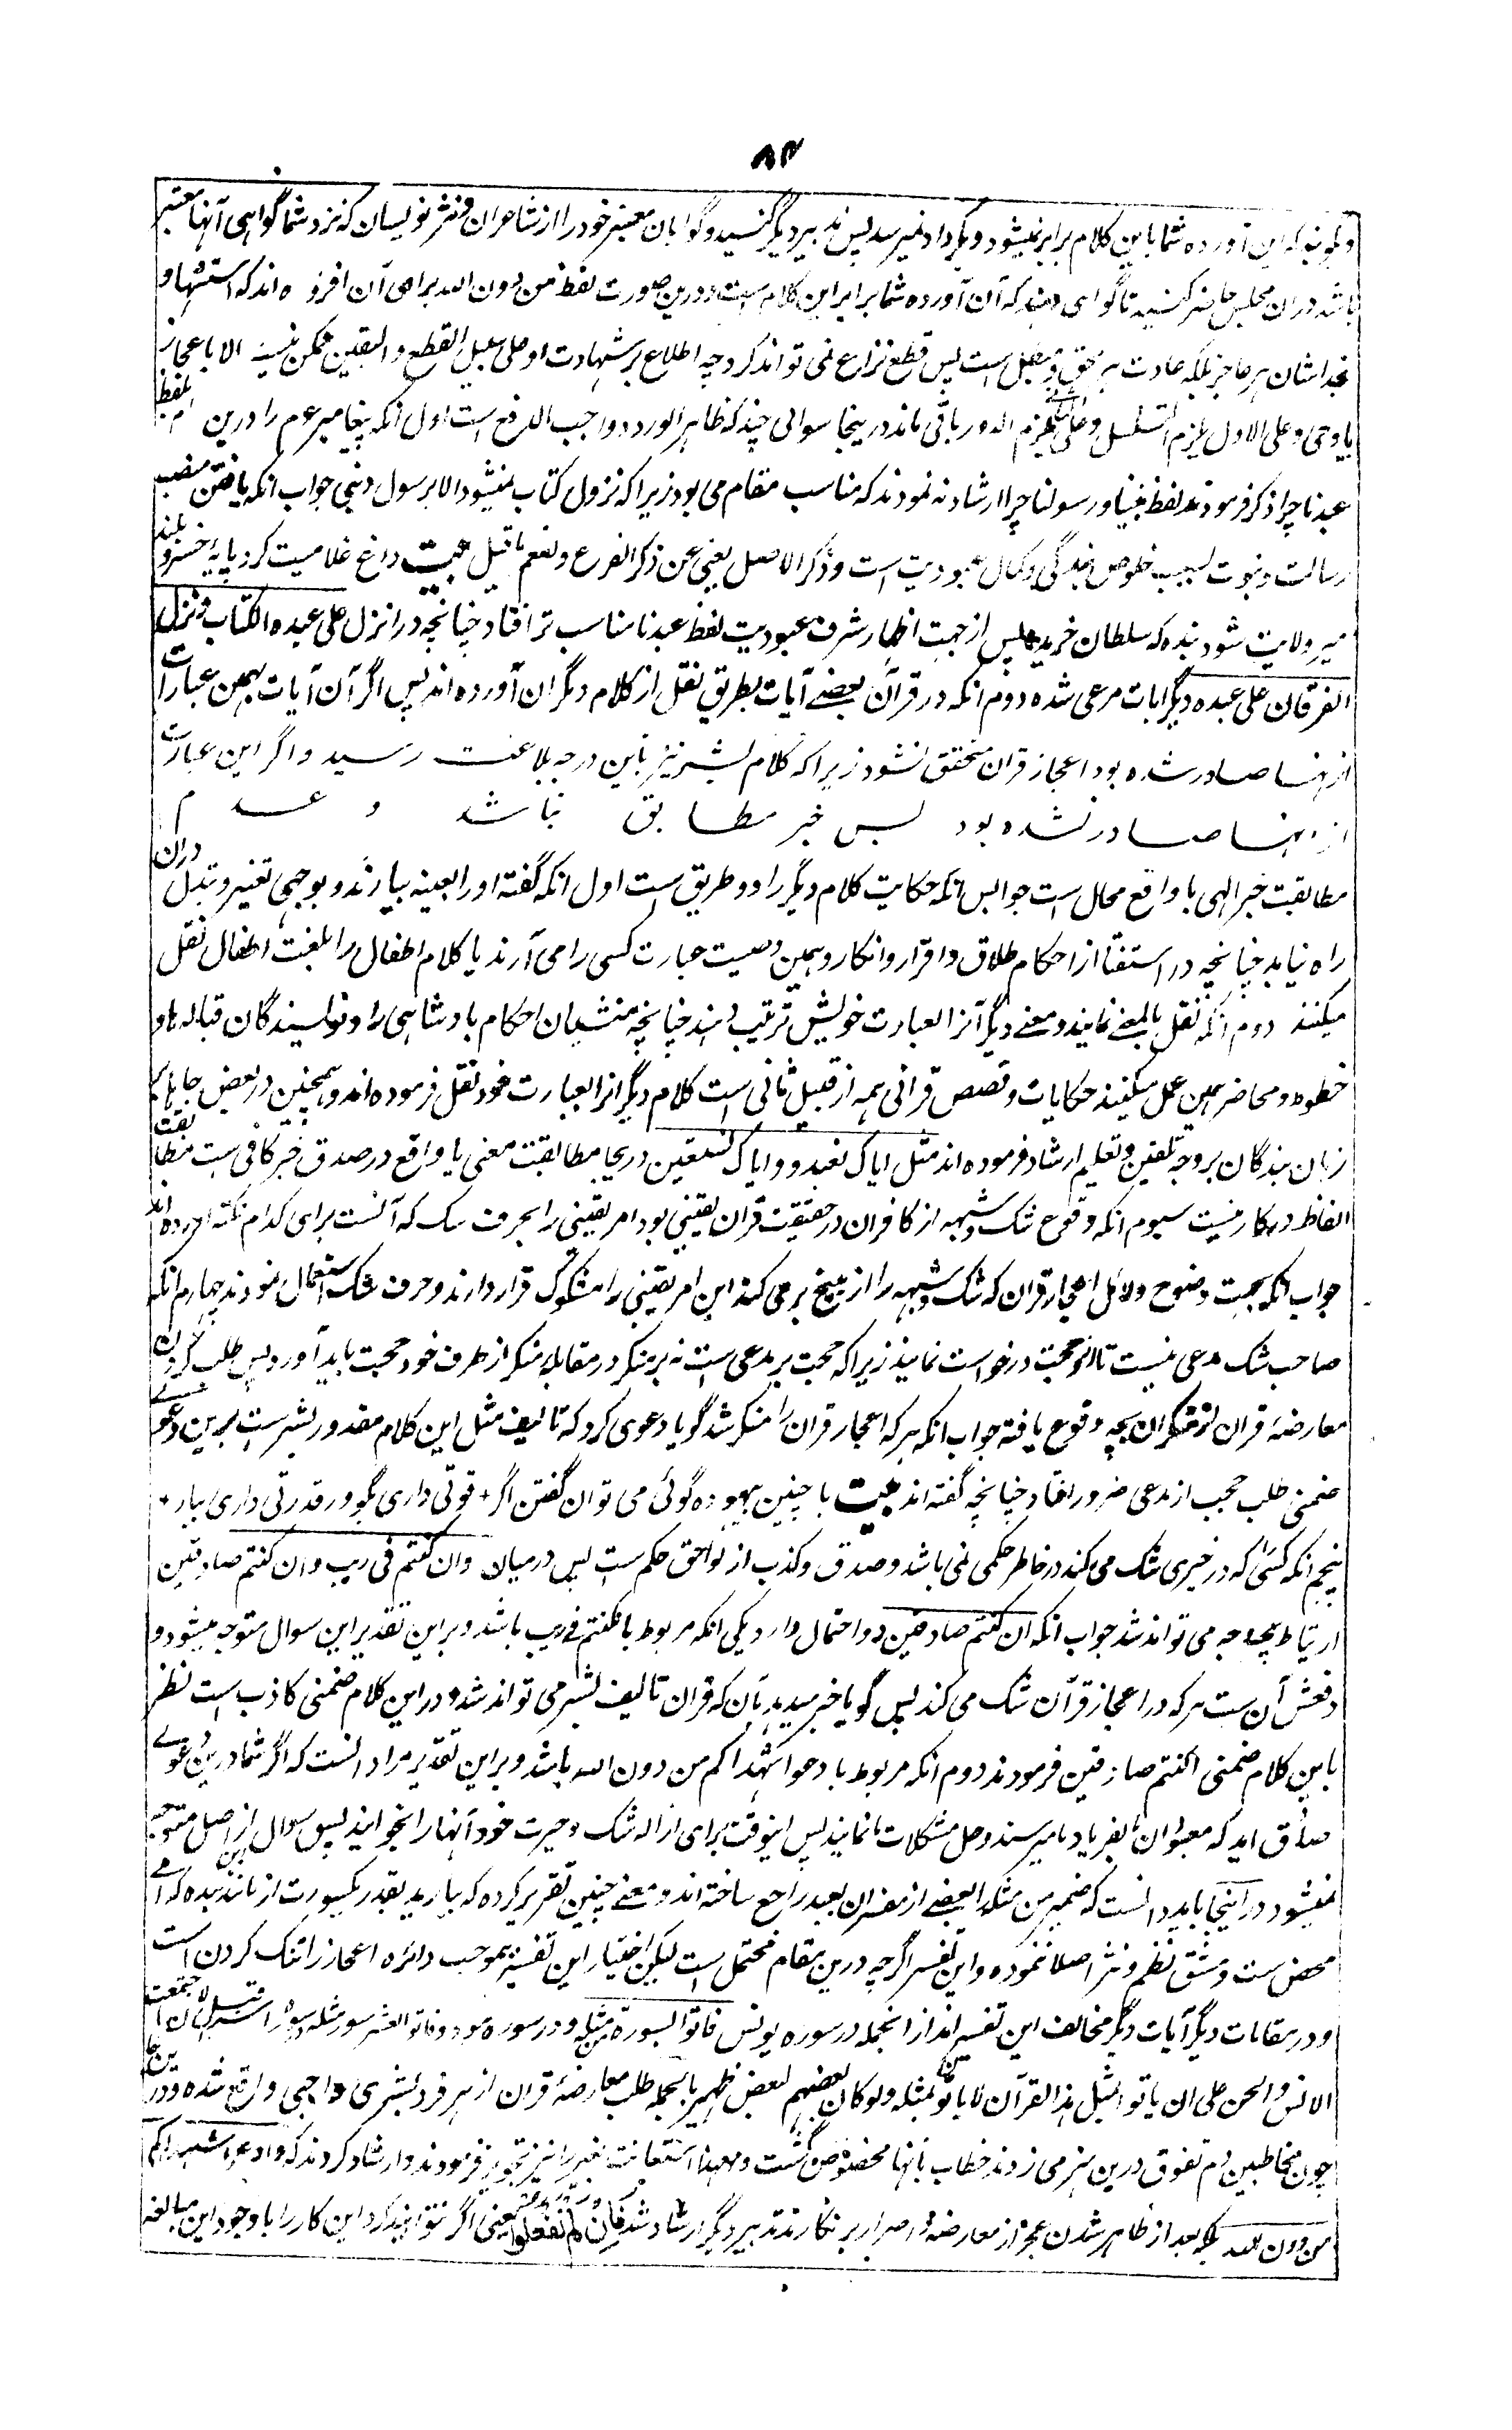 ۸۴
و گویند که این آورده شما باین کلام برابر نمیشود و بگرد او نمیرسد پس تدبیر دیگر کنید و گواهان معتبر خود را از شاعران و نثر نویسان که نزد شما گواهی آنها معتبر
باشد دران مجلس حاضر کنید تا گواهی دهند که آن آورده شما برابر این کلام است و درین صورت لفظ من دون الله برای آن افزوده اند که استشهاد
بخدا شان هر عاجز بلکه عادت هر محق و مبطل است پس قطع نزاع نمی تواند کرد چه اطلاع بر شهادت او علی سبیل القطع و الیقین ممکن نیست الا باعجاز
یا وحی و علی الاول یلزم التسلسل و علی یلزم الدور باقی ماند درینجا سوالی چند که ظاهر الورود و واجب الدفع است اول انکه پیغامبر عم را درین م بلفظ
عبدنا چرا ذکر فرمودند لفظ نبینا و رسولنا چرا ارشاد نه نمودند که مناسب مقام می بود زیرا که نزول کتاب نمیشود الا بر رسول و نبی جواب انکه یافتن منصب
رسالت و نبوت بسبب خلوص بندگی و کمال عبودیت است و ذکر الاصل یغنی عن ذکر الفرع و لنعم ما قیل بیت داغ غلامیت کرد پایه خسرو بلند
میر ولایت شود بنده که سلطان خرید پس از جهت اظهار شرف عبودیت لفظ عبدنا مناسب تر افتاد چنانچه در انزل علی عبده الکتاب و نزل
الفرقان علی عبده و دیگر ایات مرعی شده دوم انکه در قرآن بعضے آیات بطریق نقل از کلام دگران آورده اند پس اگر آن آیات بهمین عبارات
از آنها صادر شده بود اعجاز قران متحقق نشود زیرا که کلام بشر نیز باین درجه بلاغت رسید و اگر این عبارت
از آنها صادر نشده بود پس خبر مطابق نباشد و عدم
مطابقت خبر الهی با واقع محال است جوابس انکه حکایت کلام دیگر را دو طریق است اول انکه گفته او را بعینه بیارند و بوجهی تغییر و تبدل دران
راه نیابد چنانچه در استفتا از احکام طلاق و اقرار و انکار و یمین و وصیت عبارت کسی را می آرند یا کلام اطفال را بلغت اطفال نقل
میکنند دوم انکه نقل بالمعنے نمایند و معنے دیگر آنرا بعبارت خویش ترتیب دهند چنانچه منشیان احکام بادشاهی را و نویسندگان قباله ها و
خطوط و محاضر همین عمل میکنند حکایات و قصص قرانی همه از قبیل ثانی است کلام دیگر انرا بعبارت خود نقل فرموده اند و همچنین در بعض جاها که
زبان بندگان بر وجه تلقین و تعلیم ارشاد فرموده اند مثل ایاک نعبد و و ایاک نستعین در ینجا مطابقت معنی با واقع در صدق خبر کافی است مطابقت
الفاظ درکار نیست سیوم انکه وقوع شک و شبهه از کافران در حقیقت قران یقینی بود امر یقینی را بحرف شک که آنست برای کدام نکته آورده اند
جواب انکه بجهت وضوح دلائل اعجاز قران که شک و شبهه را از بیخ برمی کند این امر یقینی را مشکوک قرار دارند و حرف شک استعمال نمودند چهارم انکه
صاحب شک مدعی نیست تا ازو حجت درخواست نمایند زیرا که حجت بر مدعی است نه بر منکر در مقابله منکر از طرف خود حجت باید آورد پس طلب کردن
معارضهٔ قران از منکران بچه وقوع یافته جواب انکه هر که اعجاز قران را منکر شد گویا دعوی کرد که تالیف مثل این کلام مقدور بشر ست برین دعوے
ضمنی طلب حجت از مدعی ضرور افتاد چنانچه گفته اند بیت با چنین بیهوده گوئی می توان گفتن اگر * قوتی داری بگو ور قدرتی داری بیار *
پنجم انکه کسی که در خبری شک می کند در خاطر حکمی نمی باشد و صدق و کذب از لواحق حکم ست پس درمیان وان کنتم فی ریب و ان کنتم صادقین
ارتباط بچه وجه می تواند شد جواب انکه ان کنتم صادقین دو احتمال دارد یکی انکه مربوط با کنتم فی ریب باشد و براین تقدیر این سوال متوجه میشود و
دفعش آن ست هر که در اعجاز قرآن شک می کند پس گویا خبر میدهد بآن که قران تالیف بشر می تواند شد و در این کلام ضمنی کاذب است نظر
باین کلام ضمنی اکنتم صادقین فرمودند دوم انکه مربوط با دعوا شهداکم من دون الله باشد و براین تقدیر مراد انست که اگر شما درین دعوے
صادق اید که معبودان ما بفریاد ما میرسند و حل مشکلات ما نمایند پس اینوقت برای ازاله شک و حیرت خود آنها را بخوانید پس سوال از اصل متوجه
نمیشود در اینجا باید دانست که ضمیر من مثله را بعضے از مفسران بعبد راجع ساخته اند و معنے چنین تقریر کرده که بیارید بقدر یکسورت از مانند بنده که امے
محض ست و مشق نظم و نثر اصلا ننموده و این تفسیر اگرچه درین مقام محتمل است لیکن اختیار این تفسیر بموجب دائره اعجاز را تنگ کردن است
و در مقامات دیگر آیات دیگر مخالف این تفسیر اند از انجمله در سوره یونس فاتوا بسورة مثله و در سوره هود و فاتوا بعشر سور مثله و در سوره اجتمعت
الانس والجن علی ان یاتوا بمثل هذا القرآن لا یاتون بمثله ولو کان بعضهم لبعض ظهیر بالجمله طلب معارضهٔ قران از هر فرد بشری واجبی واقع شده و در
چون مخاطبین دم تفوق درین هنر می زدند خطاب بآنها مخصوص گشت و معهذا استعانت بغیر را نیز تجویز فرمودند و ارشاد کردند که وادعوا شهداءکم
من دون الله بلکه بعد از ظاهر شدن عجز از معارضه و اصرار بر انکار تدبیر دیگر ارشاد شد فان لم تفعلوا یعنی اگر نتوانید کرد این کار را با وجود این مبالغه